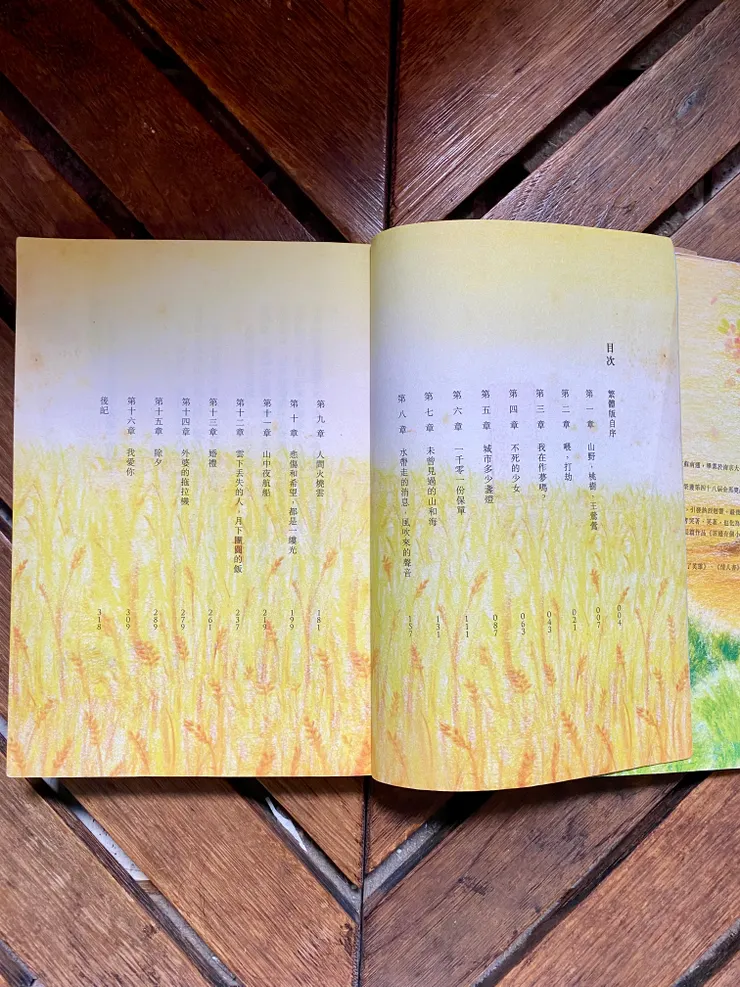 目次
繁體版自序 004
第一章 山野，桃樹，王鶯鶯 007
第二章 喂，打劫 021
第三章 我在作夢嗎？ 043
第四章 不死的少女 063
第五章 城市多少盞燈 087
第六章 一千零一份保單 111
第七章 未曾見過的山和海 131
第八章 水帶走的消息，風吹來的聲音 157
第九章 人間火燒雲 181
第十章 悲傷和希望，都是一縷光 199
第十一章 山中夜航船
第十二章 雲下丟失的人，月下團圓的飯 237
第十三章 婚禮 261
第十四章 外婆的拖拉機 279
第十五章 除夕 289
第十六章 我愛你 309
後記 318
南通，畢業於南京大
第四十八屆金馬獎